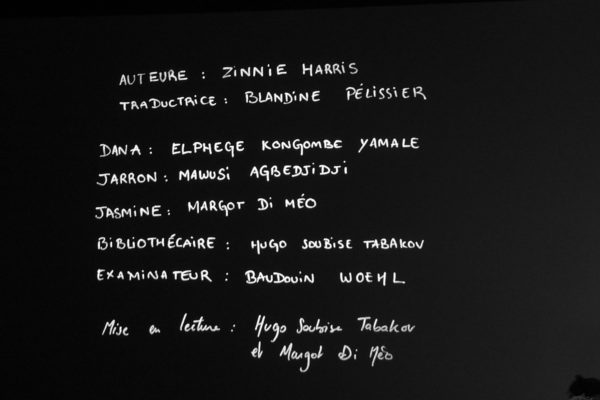 AUTEURE : ZINNIE HARRIS
TRADUCTRICE : BLANDINE PÉLISSIER
DANA : ELPHEGE KONGOMBE YAMALE
JARRON : MAWUSI AGBEDJIDJI
JASMINE : MARGOT DI MÉO
BIBLIOTHÉCAIRE : HUGO SOUBISE TABAKOV
EXAMINATEUR : BAUDOUIN WOEHL
Mise en lecture : Hugo Soubise Tabakov
et Margot Di Méo